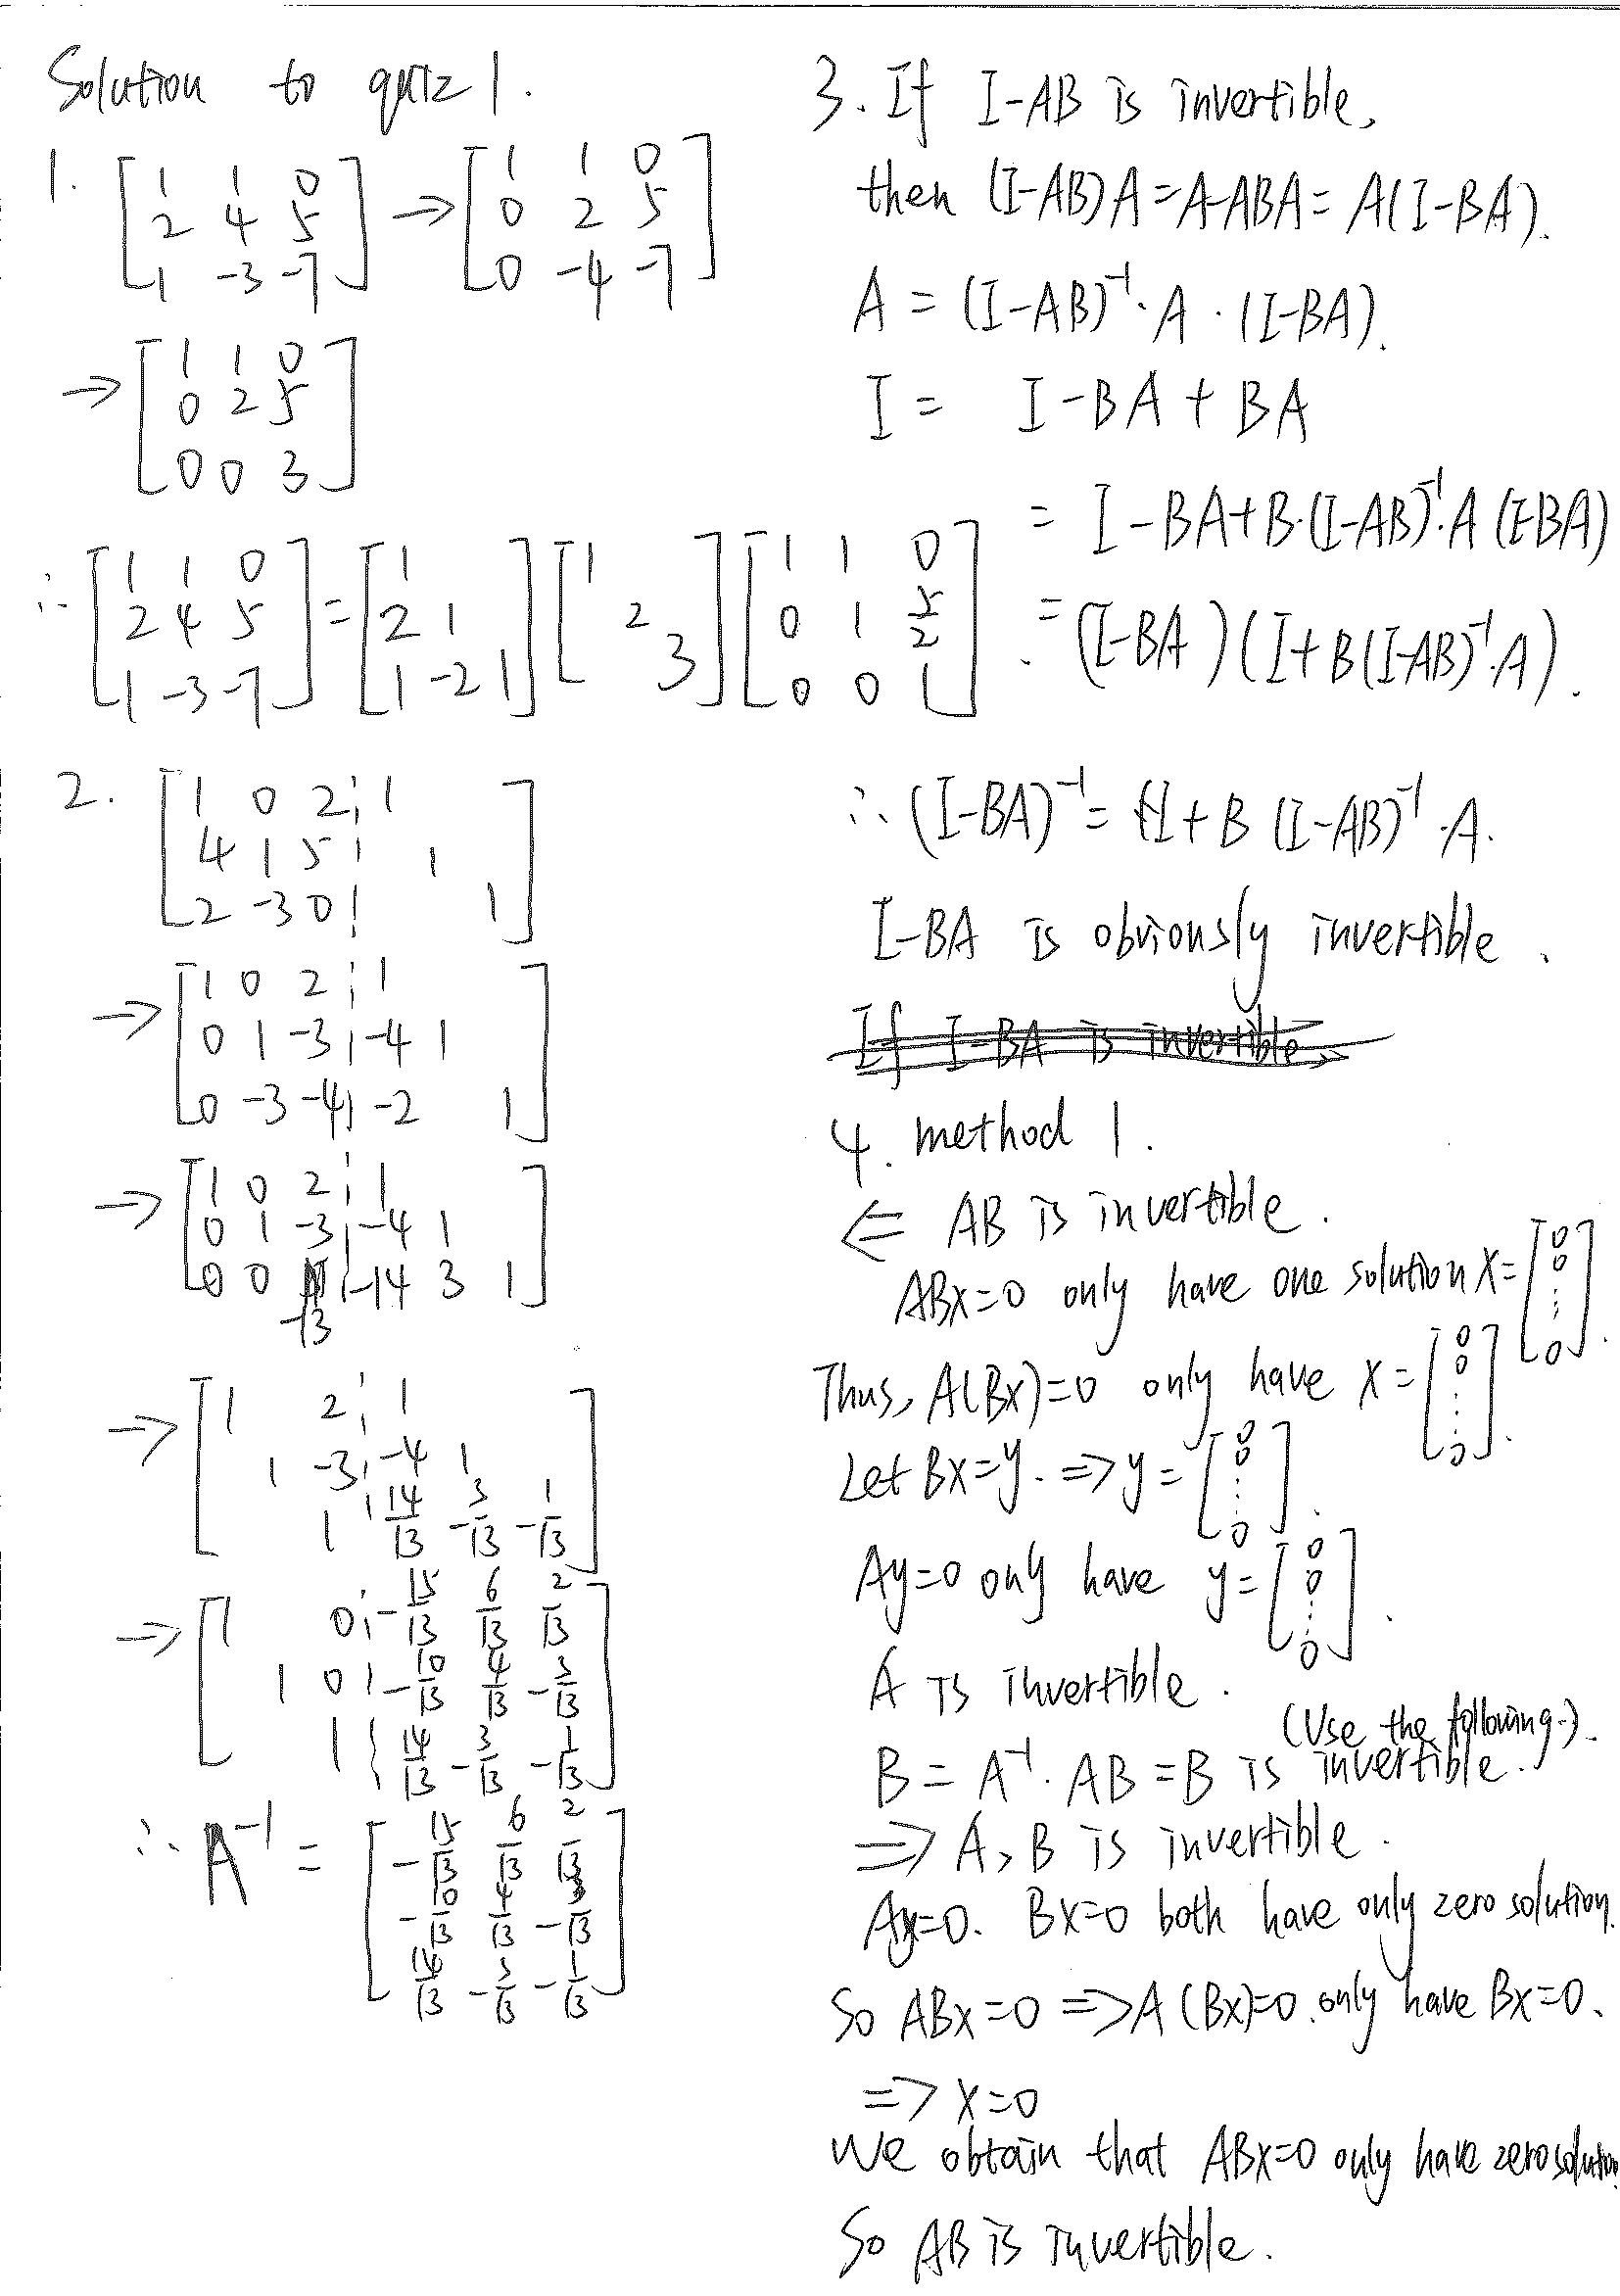 Solution to quiz 1.
1. [1 1 0; 2 4 5; 1 -3 -7] → [1 1 0; 0 2 5; 0 -4 -7]
→ [1 1 0; 0 2 5; 0 0 3]
∴ [1 1 0; 2 4 5; 1 -3 -7] = [1; 2 1; 1 -2 1] [1; 2; 3] [1 1 0; 0 1 5/2; 0 0 1].
2. [1 0 2 ¦ 1; 4 1 5 ¦ 1; 2 -3 0 ¦ 1]
→ [1 0 2 ¦ 1; 0 1 -3 ¦ -4 1; 0 -3 -4 ¦ -2 1]
→ [1 0 2 ¦ 1; 0 1 -3 ¦ -4 1; 0 0 -13 ¦ -14 3 1]
→ [1 2 ¦ 1; 1 -3 ¦ -4 1; 1 ¦ 14/13 -3/13 -1/13]
→ [1 0 ¦ -15/13 6/13 2/13; 1 0 ¦ -10/13 4/13 -3/13; 1 ¦ 14/13 -3/13 -1/13]
∴ A⁻¹ = [-15/13 6/13 2/13; -10/13 4/13 -3/13; 14/13 -3/13 -1/13]
3. If I-AB is invertible,
then (I-AB)A = A-ABA = A(I-BA).
A = (I-AB)⁻¹·A·(I-BA).
I = I-BA+BA
= I-BA+B·(I-AB)⁻¹·A(I-BA)
= (I-BA)(I+B(I-AB)⁻¹·A).
∴ (I-BA)⁻¹ = I+B(I-AB)⁻¹·A.
I-BA is obviously invertible.
If I-BA is invertible,
4. method 1.
⇐ AB is invertible.
ABx=0 only have one solution x=[0 0 ⋮ 0].
Thus, A(Bx)=0 only have x=[0 0 ⋮ 0].
Let Bx=y. ⇒ y=[0 0 ⋮ 0].
Ay=0 only have y=[0 0 ⋮ 0].
A is invertible.
(Use the following.).
B = A⁻¹·AB = B is invertible.
⇒ A, B is invertible.
Ay=0. Bx=0 both have only zero solution.
So ABx=0 ⇒ A(Bx)=0. only have Bx=0.
⇒ x=0
We obtain that ABx=0 only have zero solution.
So AB is invertible.